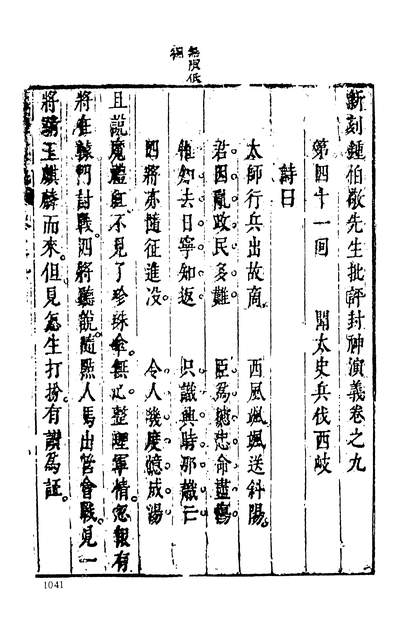 新刻鍾伯敬先生批評封神演義卷之九
第四十一回　聞太史兵伐西岐
詩曰
太師行兵出故商　西風颯颯送斜陽。
君因亂政民多難。　臣為忠命盡傷。
惟知去日寧知返　只識興時那識亡。
四將亦隨征進没。　令人幾度憶成湯
且說魔禮紅不見了珍珠傘。無心整理軍情。忽報有
將在轅門討戰。四將聽說。隨點人馬出營會戰。見一
將騎玉麒麟而來。但見怎生打扮。有讚為証。
1041